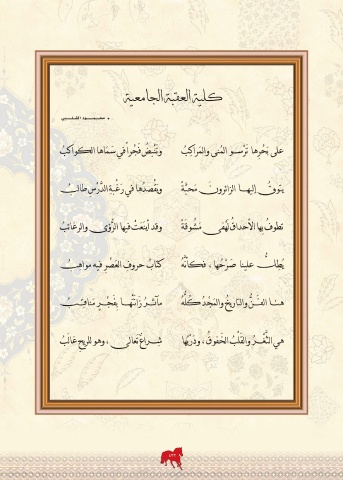 كلية العقبة الجامعية
د. محمود الشلبي
على بَحْرِها تَرْسو المُنى والمَراكِبُ وتَنْبِضُ فَخْراً في سَمَاها الكَواكِبُ
يَتوقُ إليها الزائرونَ مَحَبَّةً ويَقْصدُها في رَغْبةِ الدَّرْسِ طالِبُ
تَطوفُ بها الأحداقُ لَهْفى مَشُوقَةً وقد أينَعَتْ فيها الرُّؤى والرغائبُ
يُطِلُّ علينا صَرْحُها، فكأنَّهُ كتابُ حروفِ العَصْرِ فيه مواهِبُ
هنا الفَنُّ والتاريخُ والمَجْدُ كلُّهُ مآثرُ زانَتْها بِفَخْرٍ مَناقِبُ
هي الثَّغْرُ والقَلْبُ الخَفوقُ، ودَرْبُها شِراعٌ تَعالى، وهو للريحِ غالِبُ